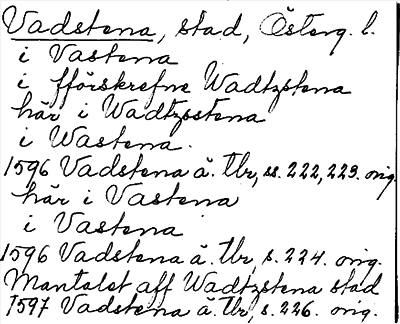 Vadstena, stad, Österg. l.
i Vastena
i fförskrefne Wadtzstena
här i Wadtzsstena
i Wastena.
1596 Vadstena ä. tbr, ss. 222, 223. orig.
här i Vastena
i Vastena
1596 Vadstena ä. tbr, s. 224. orig.
Mantalet aff Wadtzstena stad
1597 Vadstena ä. tbr, s. 226. orig.